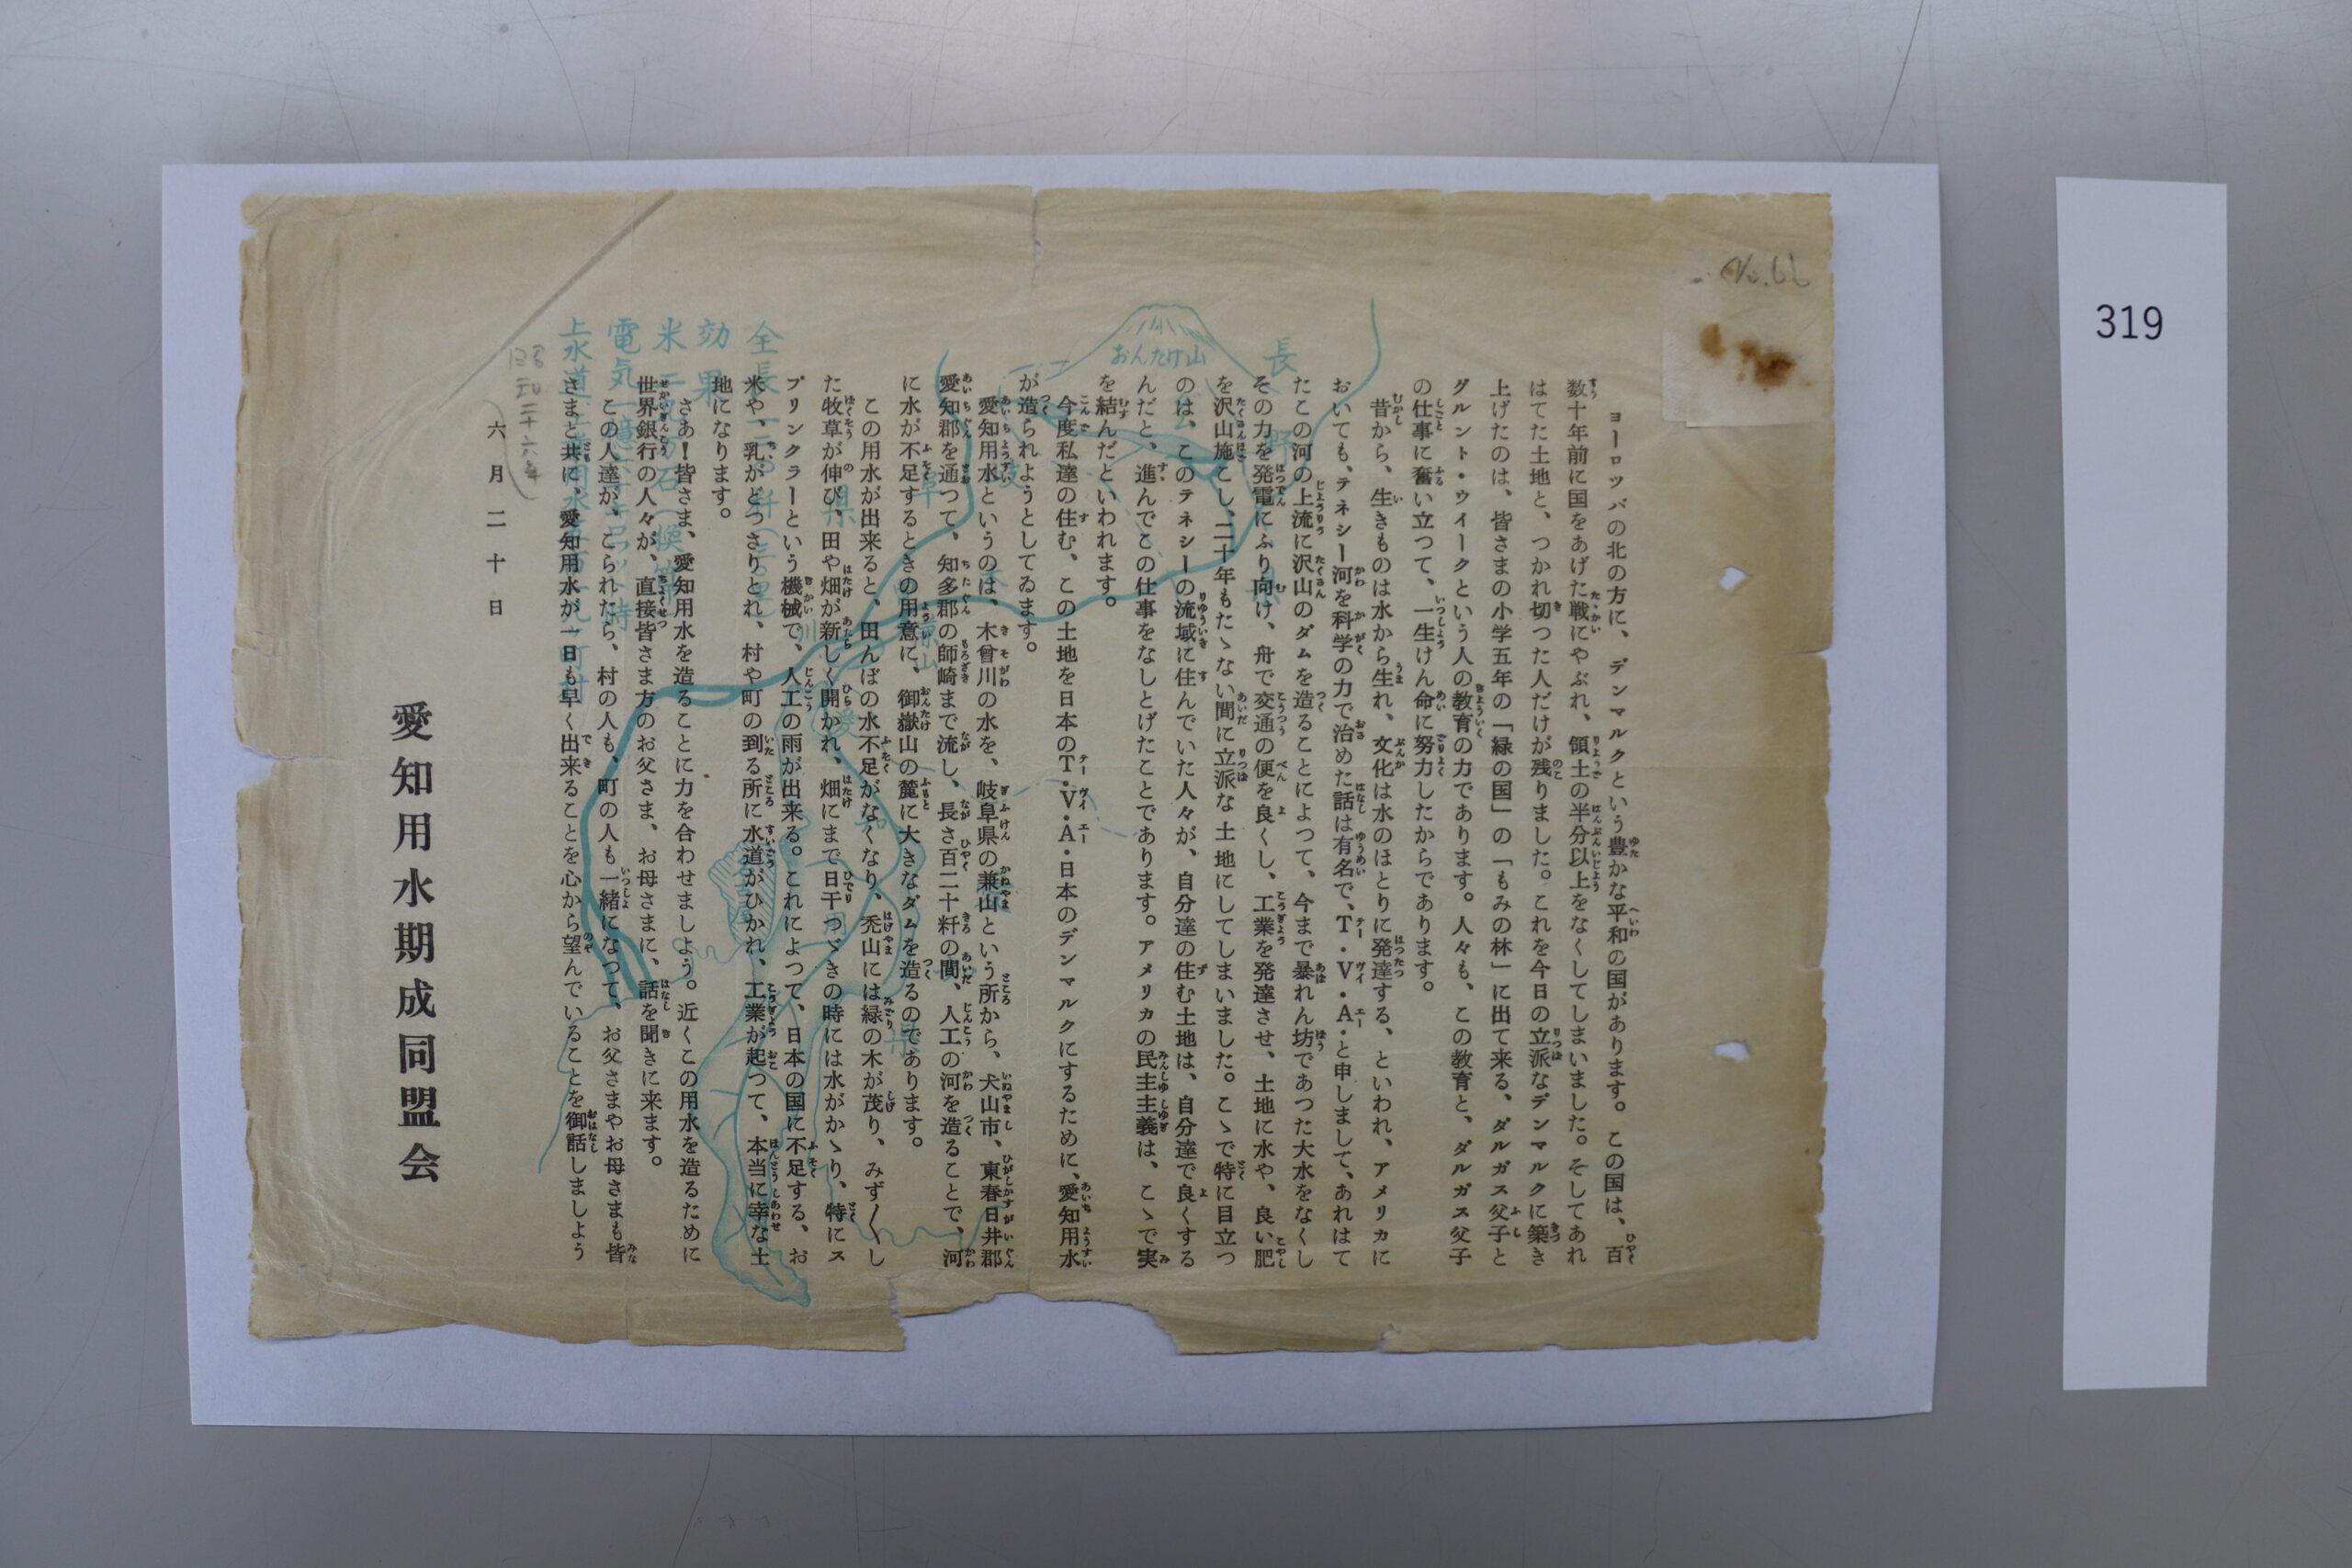 No.66
319
ヨーロッパの北の方に、デンマルクという豊かな平和の国があります。この国は、百
数十年前に国をあげた戦にやぶれ、領土の半分以上をなくしてしまいました。そしてあれ
はてた土地と、つかれ切つた人だけが残りました。これを今日の立派なデンマルクに築き
上げたのは、皆さまの小学五年の「緑の国」の「もみの林」に出て来る、ダルガス父子と
グルント・ウイークという人の教育の力であります。人々も、この教育と、ダルガス父子
の仕事に奮い立つて、一生けん命に努力したからであります。
昔から、生きものは水から生れ、文化は水のほとりに発達する、といわれ、アメリカに
おいても、テネシー河を科学の力で治めた話は有名で、T・V・A・と申しまして、あれはて
たこの河の上流に沢山のダムを造ることによつて、今まで暴れん坊であつた大水をなくし
その力を発電にふり向け、舟で交通の便を良くし、工業を発達させ、土地に水や、良い肥
を沢山施こし、二十年もたゝない間に立派な土地にしてしまいました。こゝで特に目立つ
のは、このテネシーの流域に住んでいた人々が、自分達の住む土地は、自分達で良くする
んだと、進んでこの仕事をなしとげたことであります。アメリカの民主主義は、こゝで実
を結んだといわれます。
今度私達の住む、この土地を日本のT・V・A・日本のデンマルクにするために、愛知用水
が造られようとしてゐます。
愛知用水というのは、木曾川の水を、岐阜県の兼山という所から、犬山市、東春日井郡
愛知郡を通つて、知多郡の師崎まで流し、長さ百二十粁の間、人工の河を造ることで、河
に水が不足するときの用意に、御嶽山の麓に大きなダムを造るのであります。
この用水が出来ると、田んぼの水不足がなくなり、禿山には緑の木が茂り、みず〳〵し
た牧草が伸び、田や畑が新しく開かれ、畑にまで日干つゞきの時には水がかゝり、特にス
プリンクラーという機械で、人工の雨が出来る。これによつて、日本の国に不足する、お
米や、乳がどつさりとれ、村や町の到る所に水道がひかれ、工業が起つて、本当に幸な土
地になります。
さあ!皆さま、愛知用水を造ることに力を合わせましよう。近くこの用水を造るために
世界銀行の人々が、直接皆さま方のお父さま、お母さまに、話を聞きに来ます。
この人達が、こられたら、村の人も、町の人も一緒になつて、お父さまやお母さまも皆
さまと共に、愛知用水が一日も早く出来ることを心から望んでいることを御話しましよう
昭和二十六年
六月二十日
愛知用水期成同盟会
おんたけ山
長野県
岐阜県
愛知県
効果